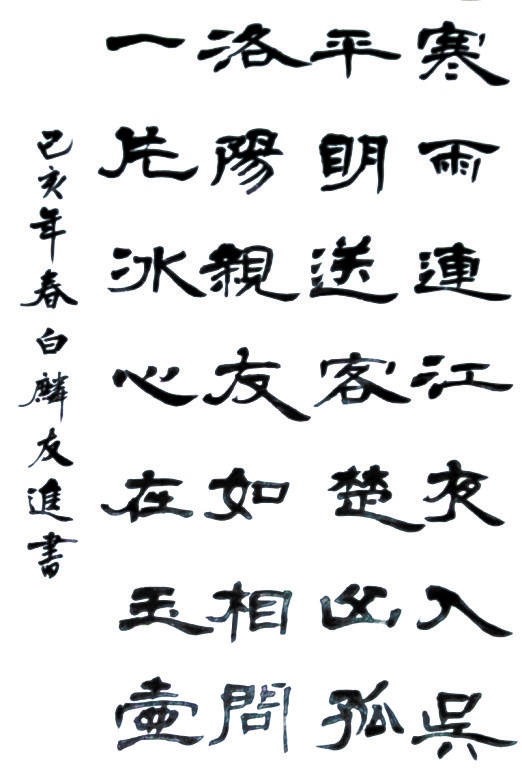 寒雨連江夜入吳
平明送客楚山孤
洛陽親友如相問
一片冰心在玉壺
己亥年春白麟友進書